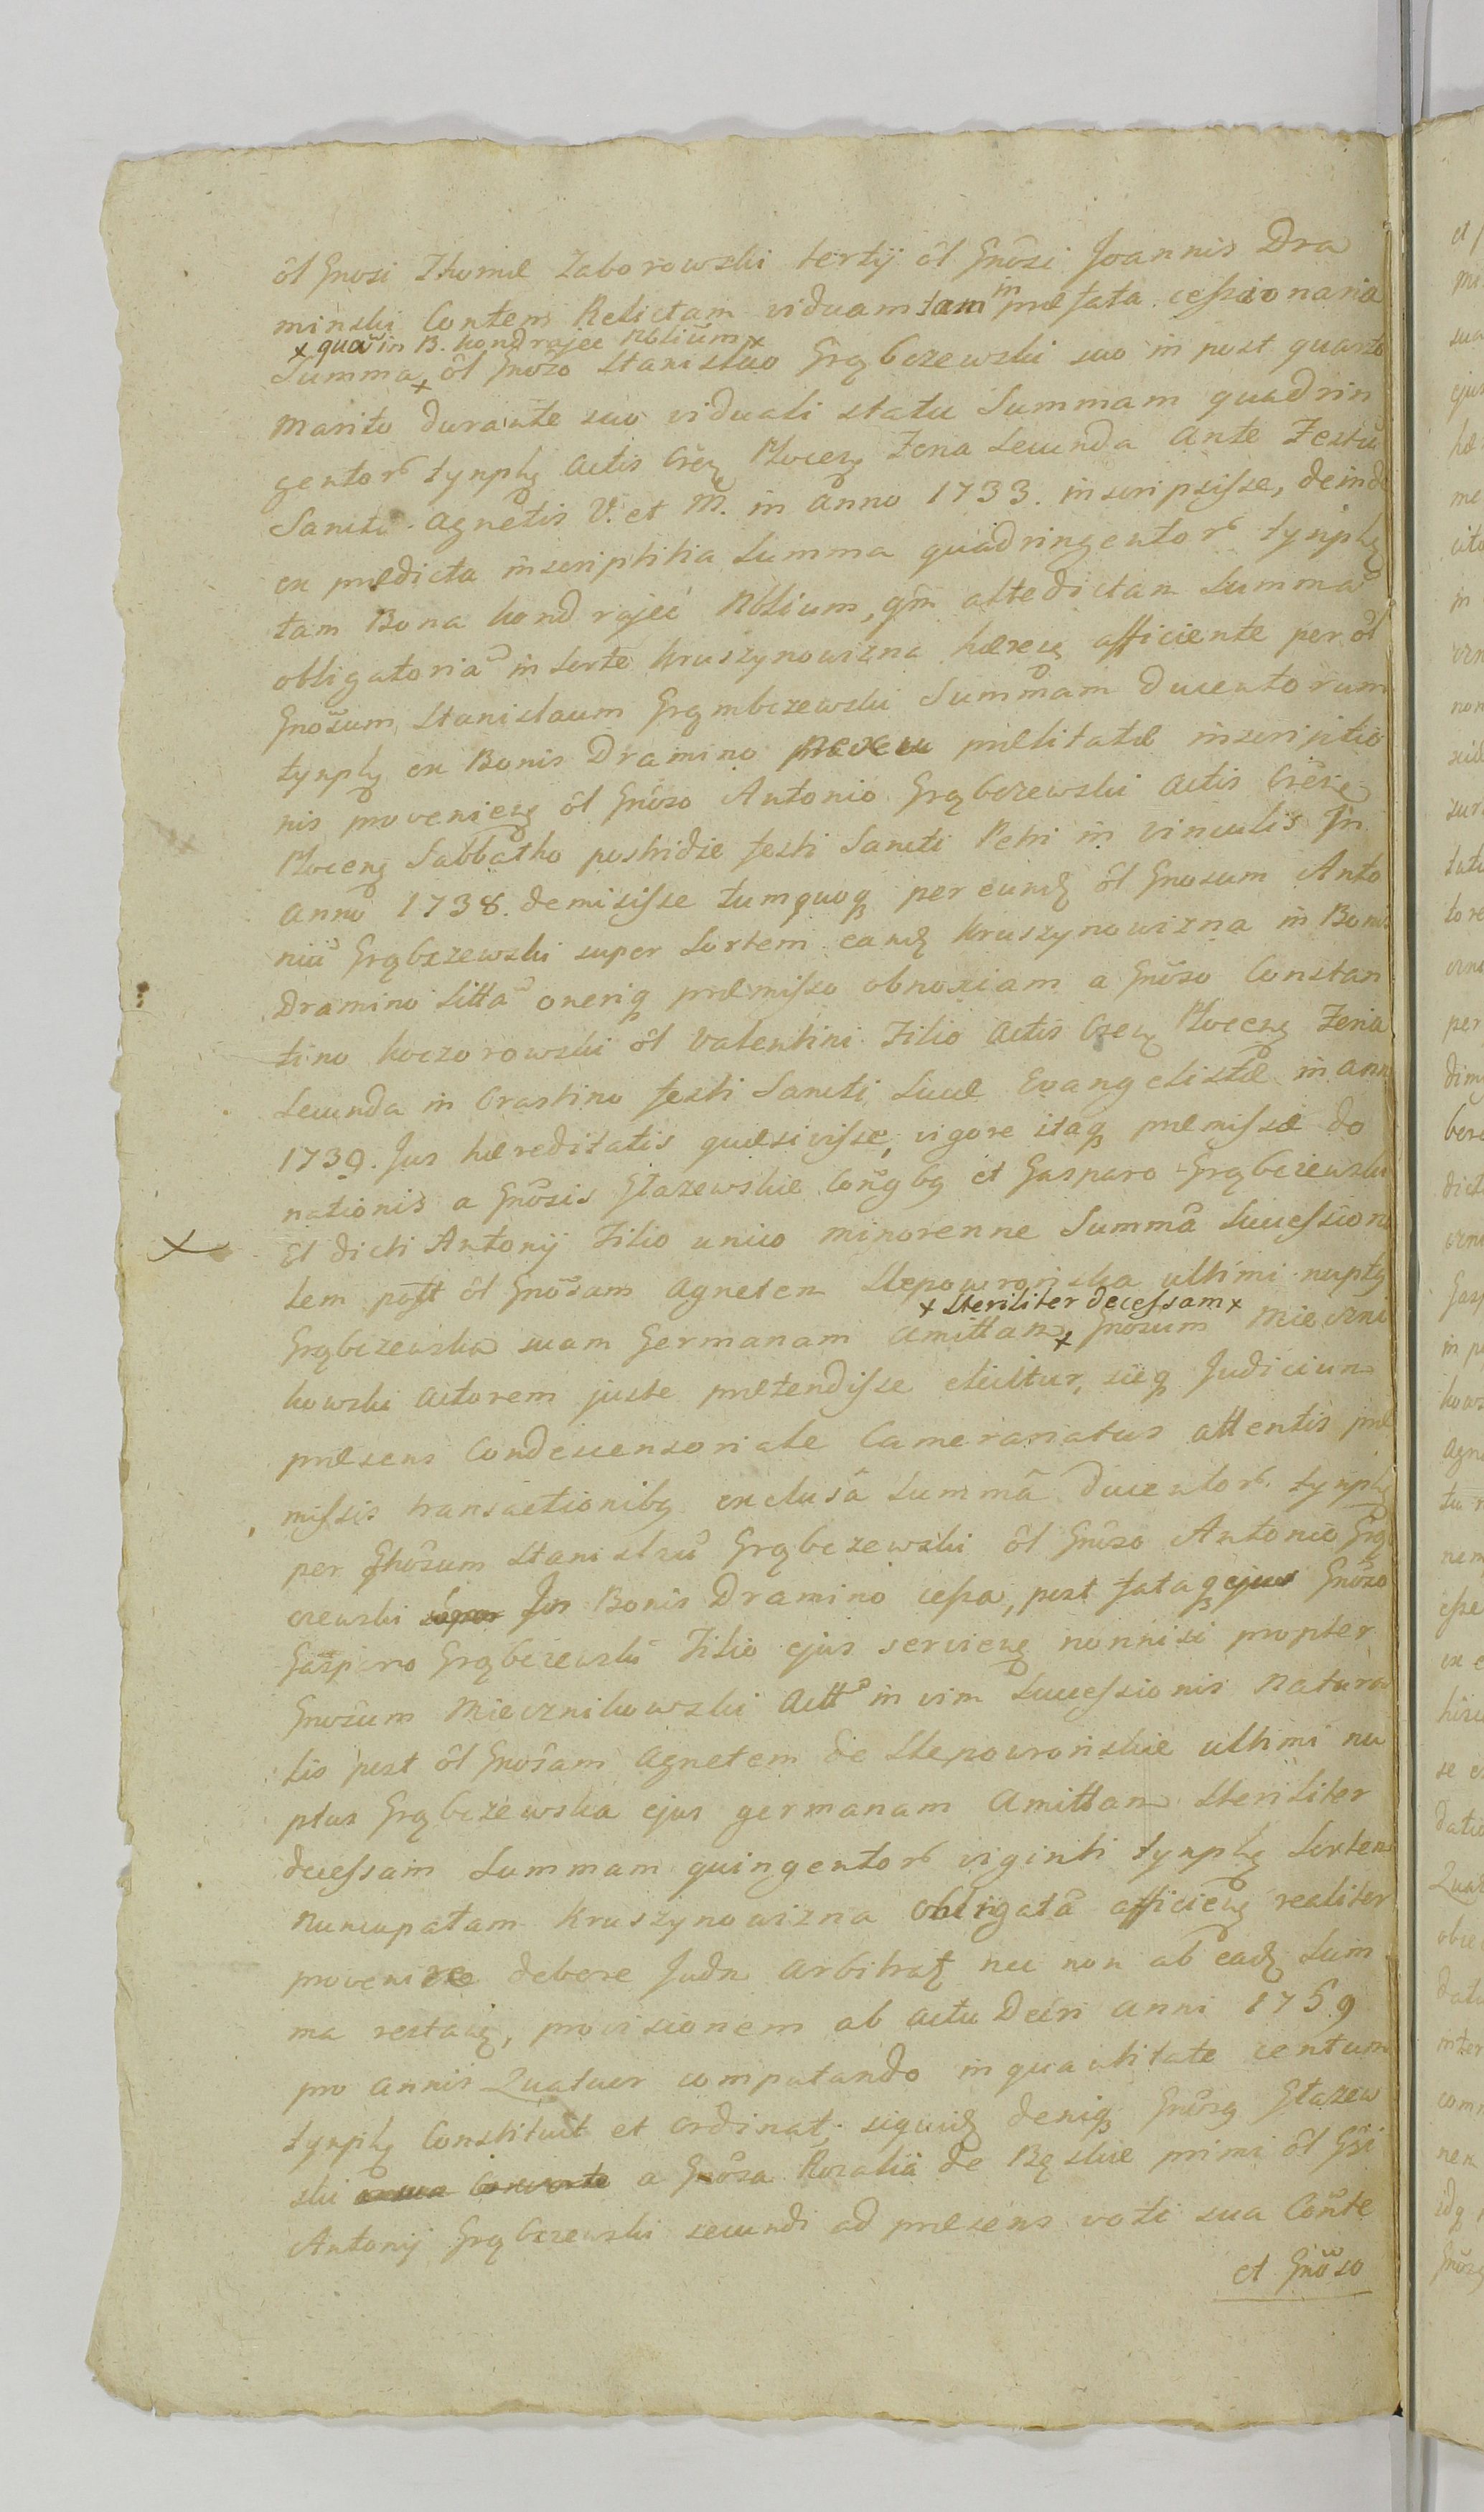 ôl Gnosi Thomæ Zaborowski tertij ôl Gnôsi Joannis Dra
minski Contem Relictam viduam tam in præfata cessionaria
x quam in B. Kondrajec Nblium x
Summa x ôl Gnoso Stanislao Grąbczewski suo in post quarto
Marito durante suo viduali statu Summam quadrin
gentor tynph Actis Crēn Plocen Feria Secunda Ante Festū
Sanctæ Agnetis V. et M. in Anno 1733. inscripsisse, deinde
ex prædicta inscriptitia Summa quadringentor tynph
tam Bona Kondrajec Nblium, qm altedictam Summā
obligatoriā in Sorte Kruszynowizna hæren afficiente per ôl
Gnosum Stanislaum Grąmbczewski Summam Ducentorum
tynph ex Bonis Dramino nexeu prælitatæ inscriptio
nis provenien ôl Gnôso Antonio Grąbczewski Actis Crēn
Plocen Sabbatho postridie festi Sancti Petri in Vinculis In
Anno 1738. demisisse tumquoq per eund ôl Gnosum Anto
niū Grąbczewski super Sortem eand Kruszynowizna in Bonis
Dramino Sittā oneriq præmisso obnoxiam a Gnôso Constan
tino Koczorowski ôl Valentini Filio Actis Crēn Plocen Feria
Secunda in Crastino festi Sancti Lucæ Evangelistæ in Ann
1739. Jus hæreditatis quæsivisse, vigore itaq præmissæ do
nationis a Gnôsis Głazewskie Conigbg et Gasparo Grąbczewski
ôl dicti Antonij Filio unico minorenne Summā Successiona
lem post ôl Gnôsam Agnetem Slepowrońska ultimi nuptg
x Steriliter decessam x
Grąbczewska suam Germanam Amittam x Gnosum Mieczni
kowski Actorem juste prætendisse elicitur, sicq Judicium
præsens Condescensoriale Camerariatus attentis præ
missis transactionibg exclusâ Summâ Ducentor tynph
per Gnôsum Stanislaū Grąbczewski ôl Gnôso Antonio Grąb
czewski super In Bonis Dramino cessa, post fataq ejus Gnôso
Gasparo Grąbczewski Filio ejus servien nonnisi propter
Gnosum Miecznikowski Actt in vim Successionis Natura
lis post ôl Gnôsam Agnetem de Slepowrońskie ultimi nu
ptus Grąbczewska ejus germanam Amittam Steriliter
decessam Summam quingentor viginti tynph Sortem
nuncupatam Kruszynowizna obligatâ afficien realiter
provenire debere Judm Arbitrat nec non ab ead Sum
ma restan, provisionem ab actu Decri Anni 1759
pro Annis Quatuor computando in quantitate centum
tynph Constituit et ordinat. siquid deniq Gnôsg Głazew
ski a Gnôsa Rozalia de Bęskie primi ôl Gsi
Antonij Grąbczewski secundi ad præsens voti sua Conte
et Gnôso